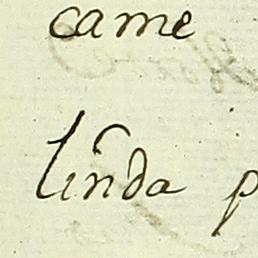 came
linda p